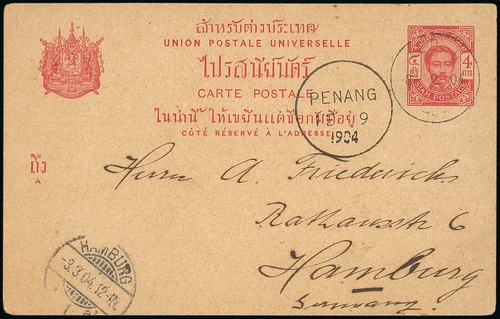 สำหรับต่างประเทศ
UNION POSTALE UNIVERSELLE
ไปรสนียบัตร์
CARTE POSTALE
ในน่านี้ ให้เขยีนแต่ชื่อกับที่อยู่
CÔTÉ RÉSERVÉ À L'ADRESSE
4
ATTS
SIAM POSTAGE
PENANG
FE 9
1904
ถึง
A
Herrn A. Friederichs
Rathausstr 6
Hamburg
Germany.
HAMBURG
-3.3.04.12-